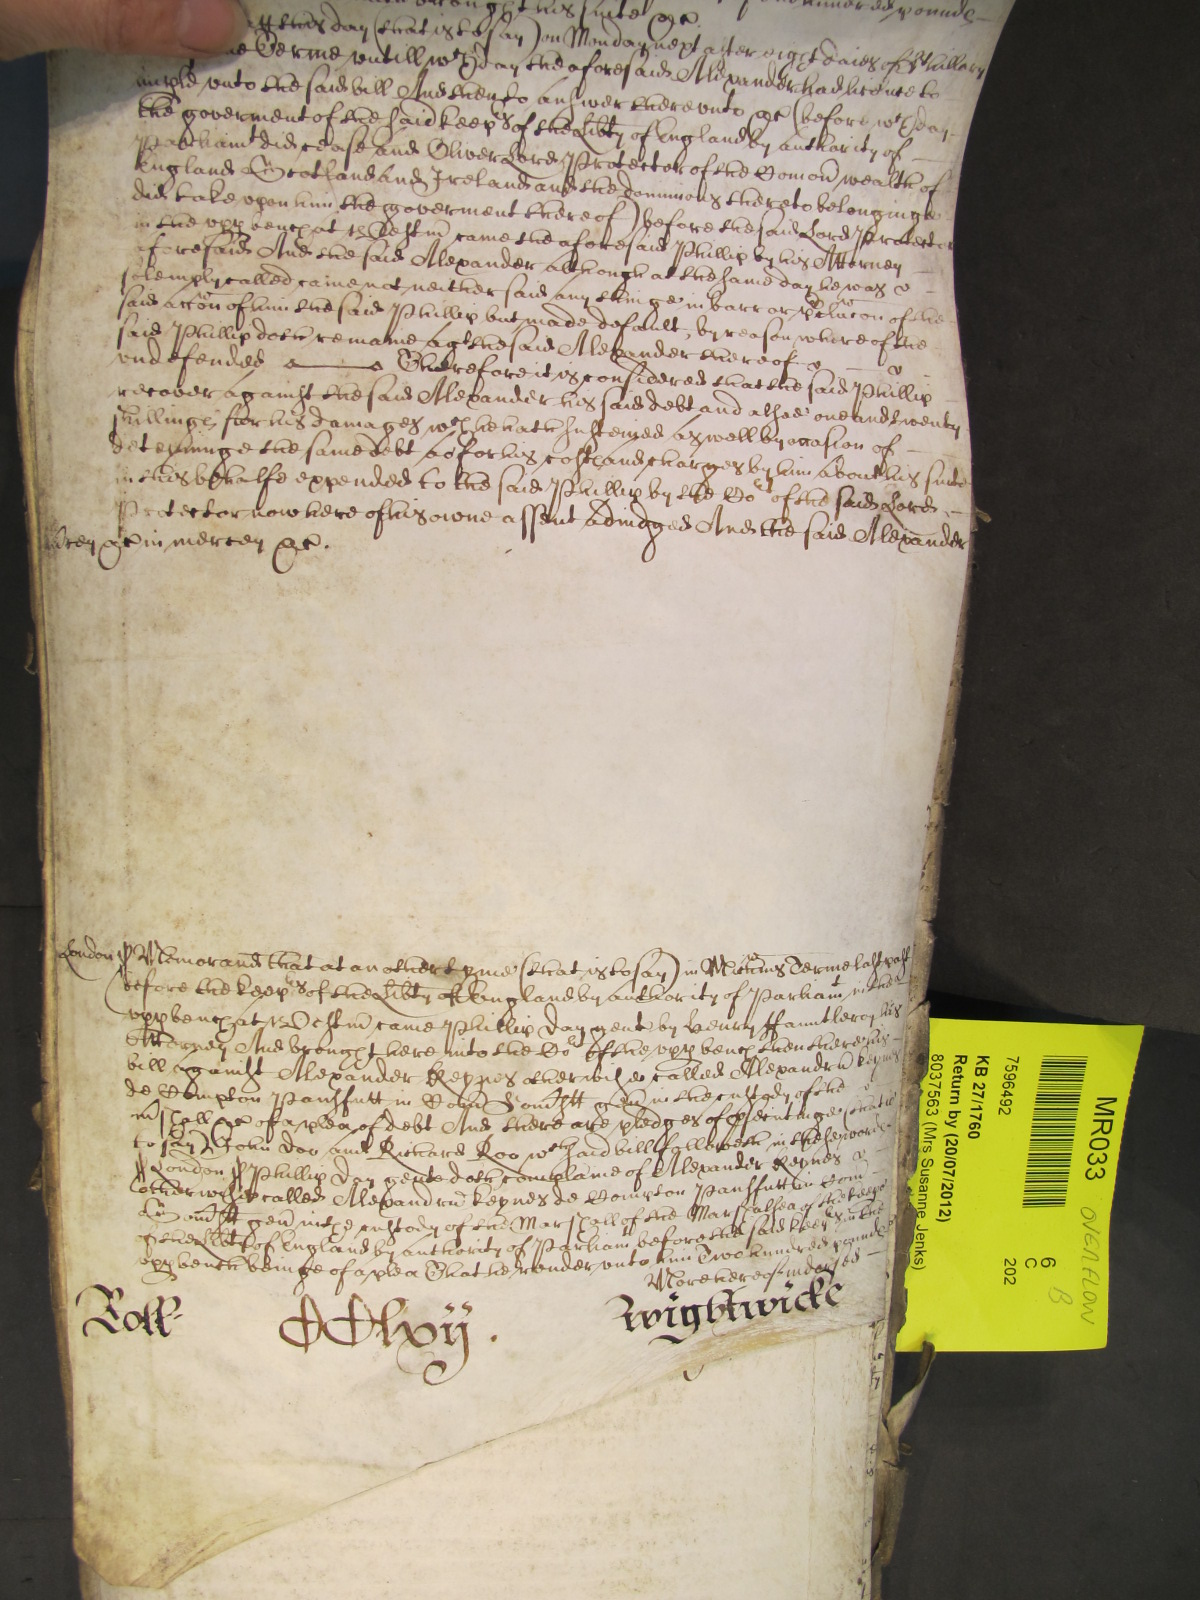 brought his suite &c.
att this day (that is to say) on Monday next after eight daies of St Hillary
Terme untill wch day the aforesaid Alexander had licence to
imple unto the said bill And then to answer thereunto &c (before wch day
the goverment of the said keeps of the Libty of England by authority of
Parliamt did cease and Oliver Lord Protector of the Comon wealth of
England Scotland and Ireland and the dominions thereto belonginge
did take upon him the goverment thereof) before the said Lord Protector
in the upp bench at Westm came the aforesaid Phillip by his Attorney
aforesaid And the said Alexander although at the same day he was
solemply called came not neither said any thinge in barr or pclucon of the
said accon of him the said Phillip but made default, by reason whereof the
said Phillip doth remaine agt the said Alexander thereof
undefended Therefore it is considered that the said Phillip
recover against the said Alexander his said debt and alsoe one and twenty
shillings for his damages wch he hath susteined aswell by occasion of
deteyninge the same debt as for his costs and charges by him about his suite
in this behalfe expended to the said Phillip by the Cort of the said Lord
Protector now here of his owne assent adiudged And the said Alexander
&c in mercy &c.
London ss Memorand that at another tyme (that is to say) in Michmis Terme last past
before the keeps of the Libty of England by authority of Parliamt in the
upp bench at Westm came Phillip Day gent by Henry Fauntleroy his
Attorney And brought here into the Cort of the upp bench then there his
bill against Alexander Keynes otherwise called Alexandru Keynes
de Compton Pauncfutt in Com Somstt gen in the custody of the
mshall &c of a plea of debt And there are pledges of psecutinge (that is
to say) John Doo and Richard Roo wch said bill followeth in these words
ss London ss Phillip Day gent doth complaine of Alexander Keynes
otherwise called Alexandru Keynes de Compton Pauncfutt in Com
Somstt gen in the custody of the Marshall of the Marshalsea of the keeps
of the Libty of England by authority of Parliamt before the said keeps in the
upp bench beinge of a plea That he render unto him Two hundred pounds
More hereof indorsed
Roll CClxij. Wightwicke
MR033
OVERFLOW
B
6
C
202
7596492
KB 27/1760
Return by (20/07/2012)
8037563 (Mrs Susanne Jenks)